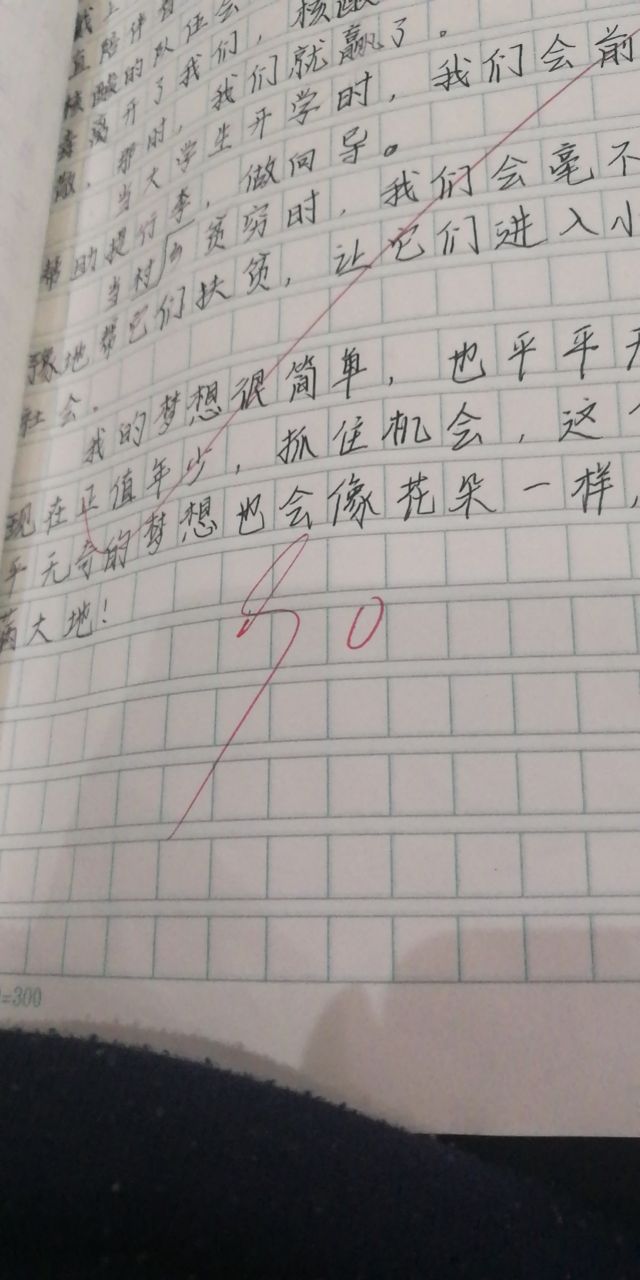 戴上
直陪伴着
核酸的队伍会
离开了我们，核酸
时，我们就赢了。
当大学生开学时，我们会前
帮助提行李，做向导。
当村乡贫穷时，我们会毫不
豫地帮它们扶贫，让它们进入小
社会。
我的梦想很简单，也平平无
现在正值年少，抓住机会，这个
平无奇的梦想也会像花朵一样，
满大地！
90
=300